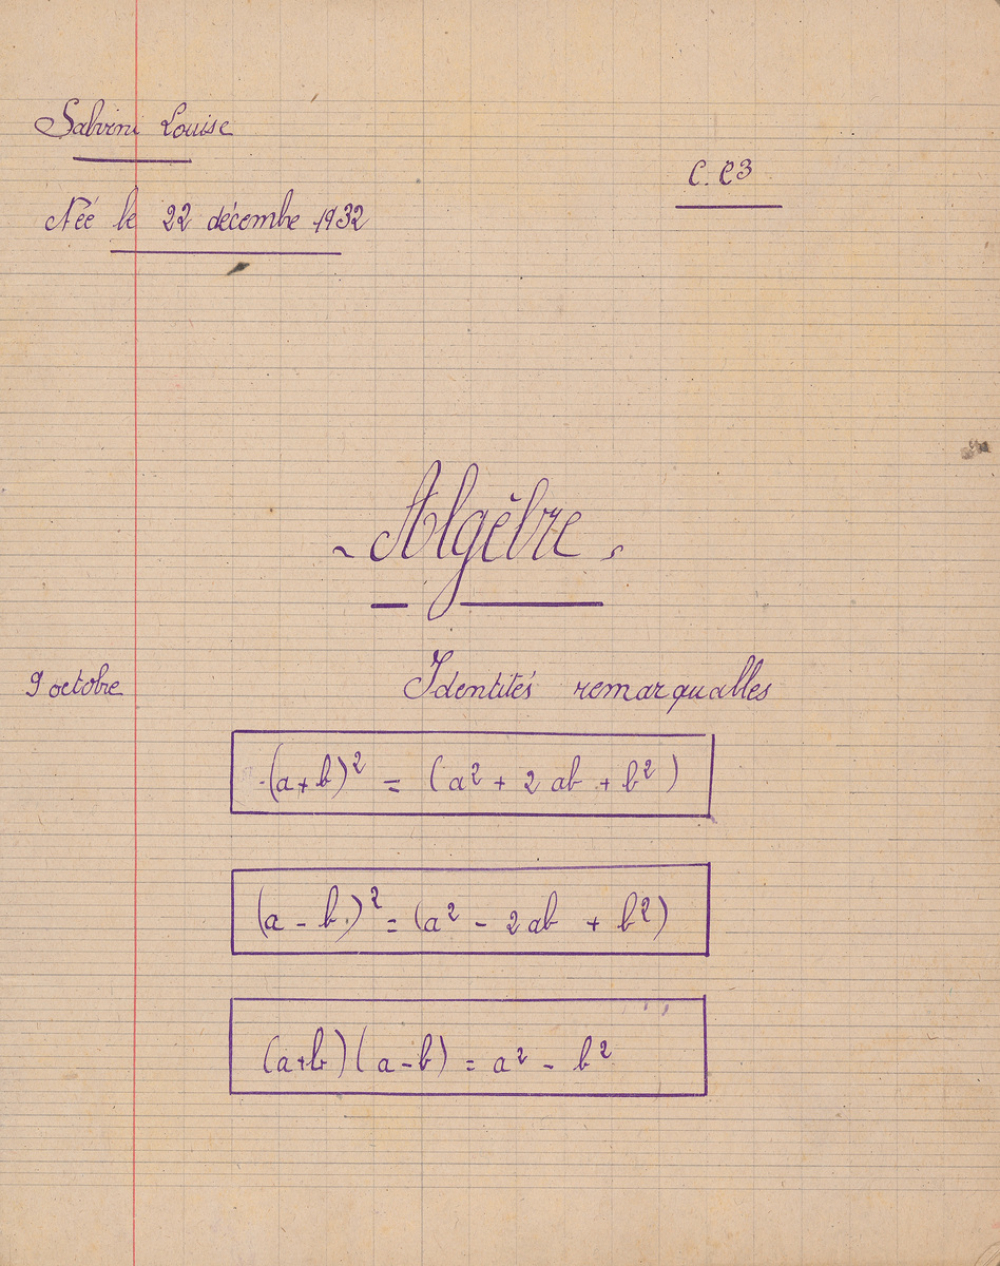 Salvini Louise
C. C3
Née le 22 décembe 1932
- Algèbre -
9 octobre
Identités remarqualles
(a+b)² = (a² + 2 ab + b²)
(a - b)² = (a² - 2ab + b²)
(a+b) (a-b) = a² - b²